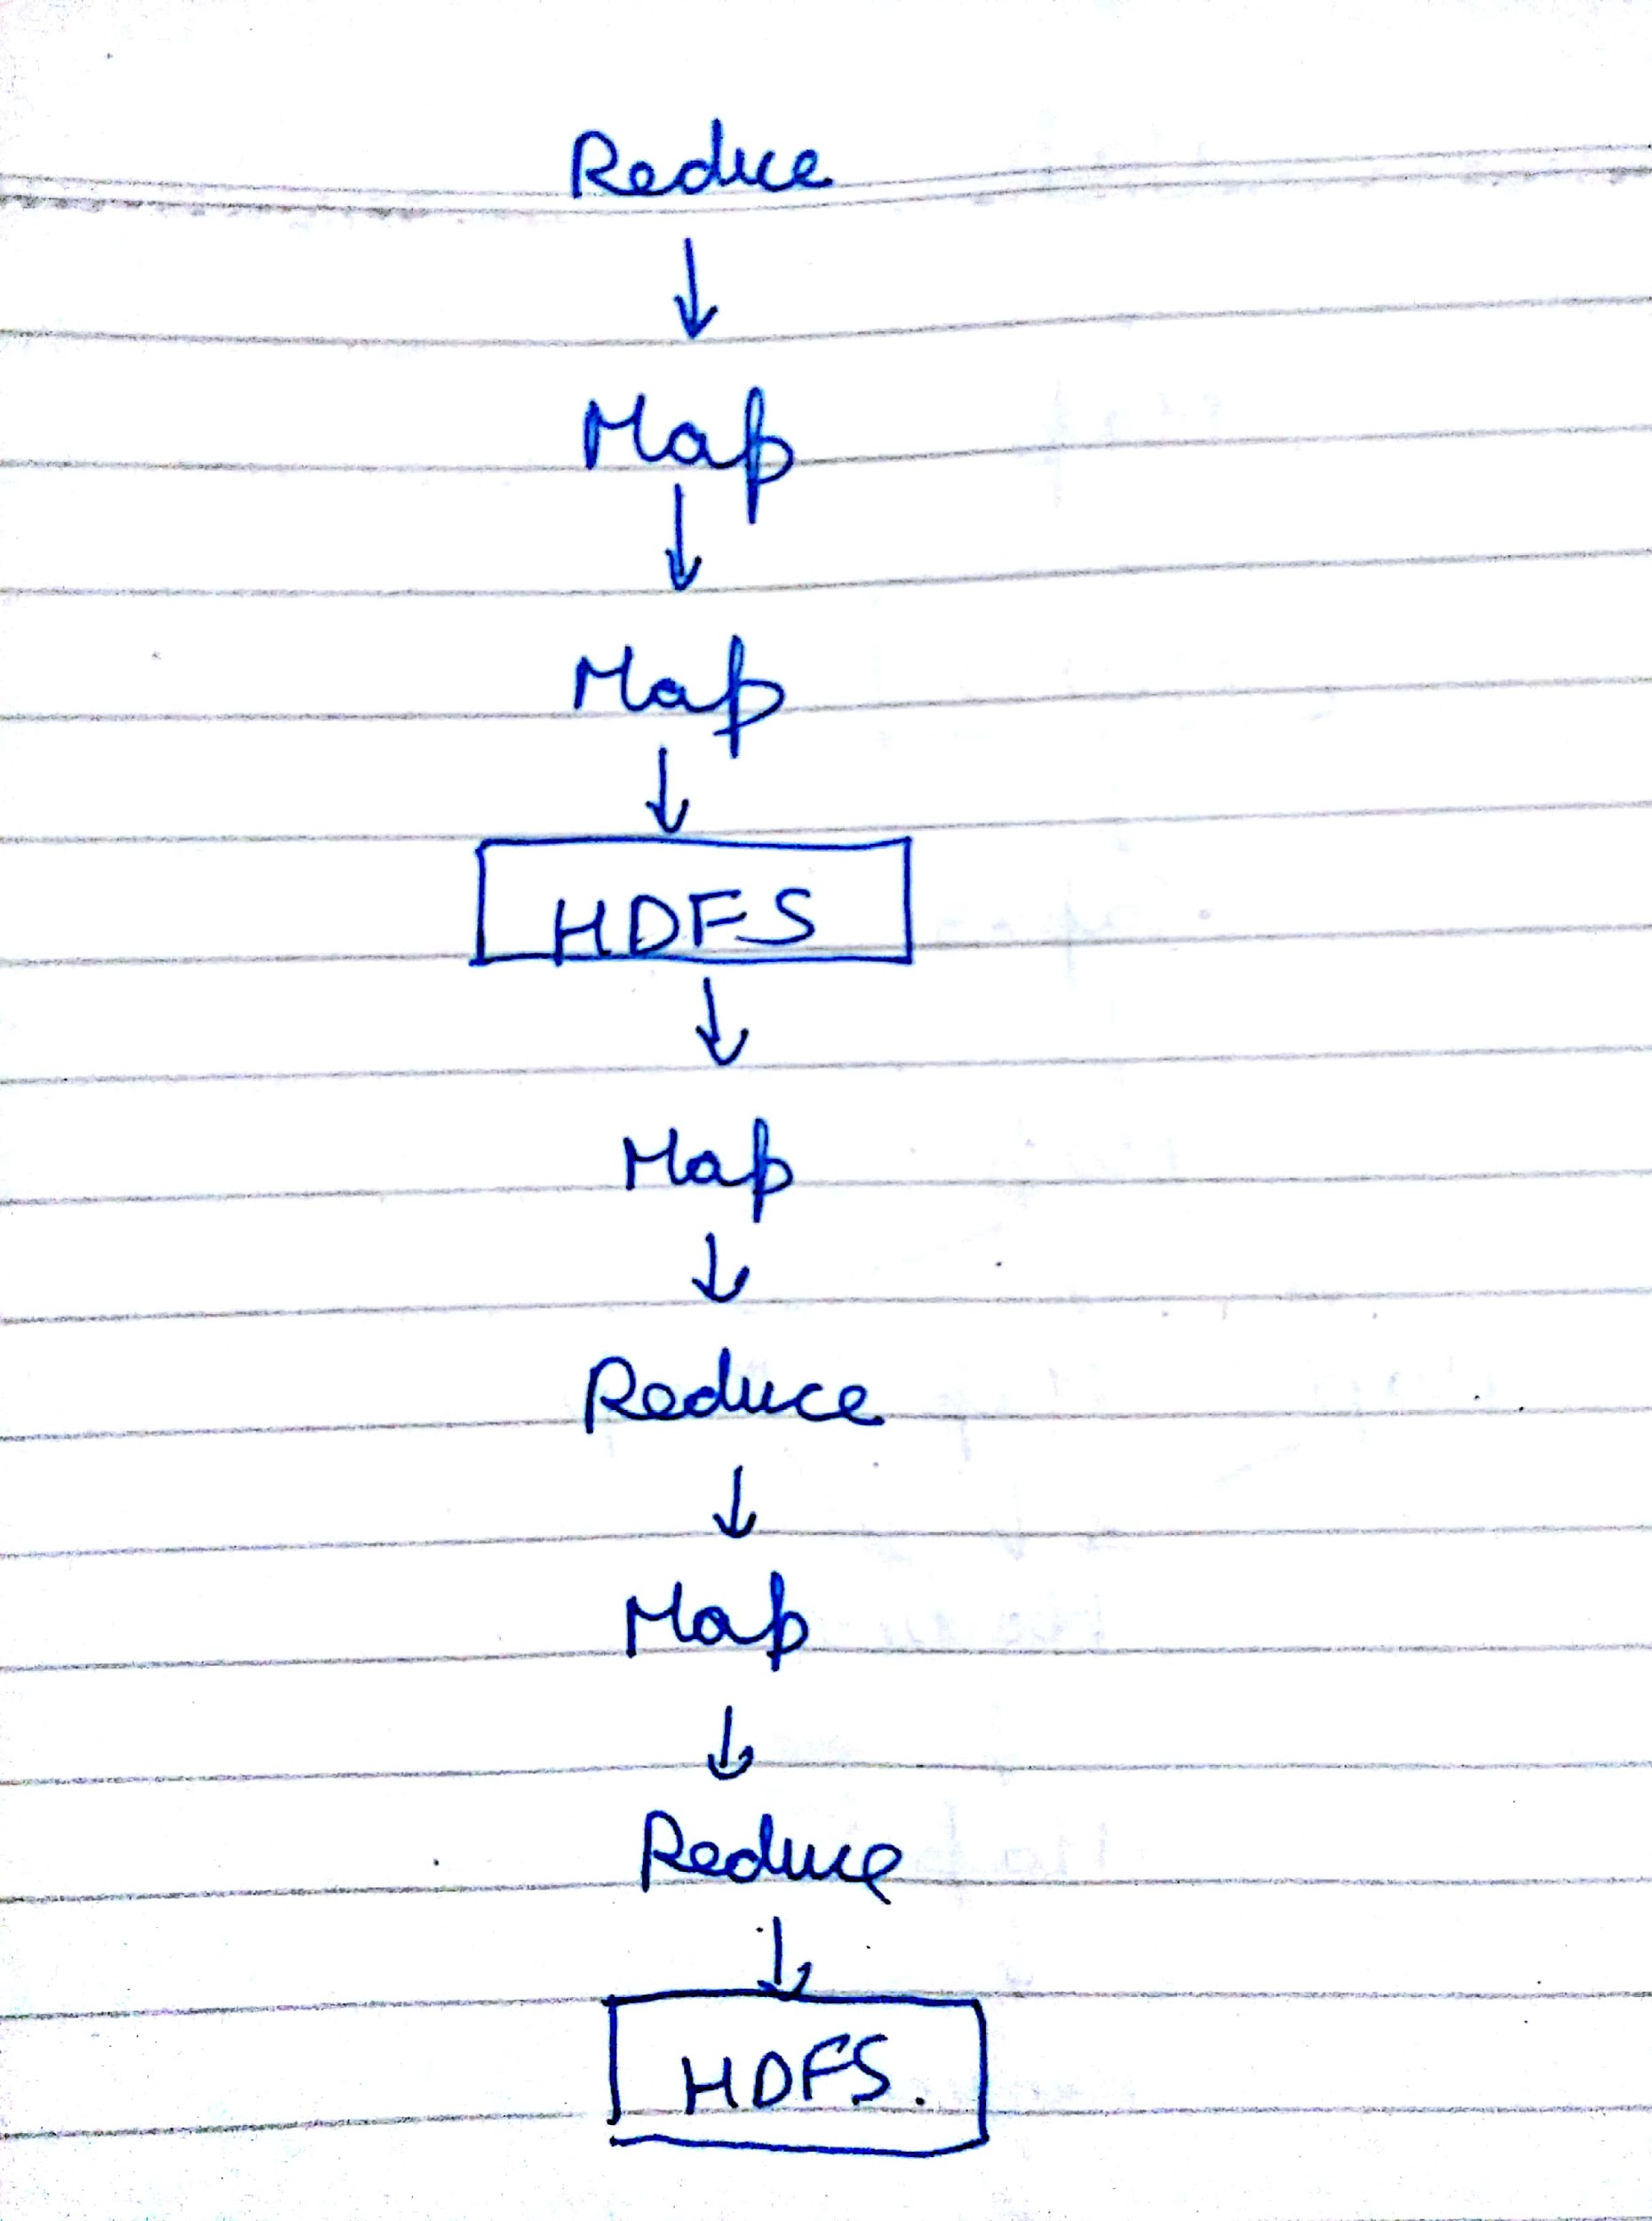 Reduce
Map
Map
HDFS
Map
Reduce
Map
Reduce
HDFS.